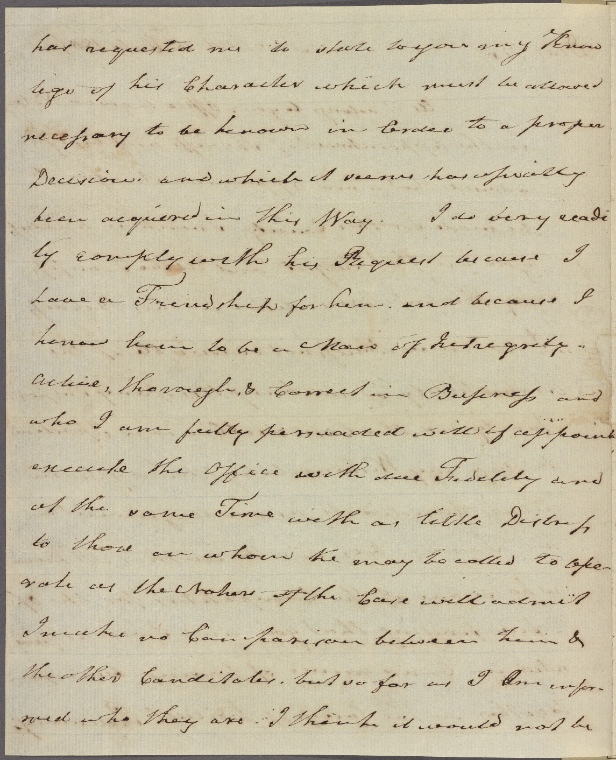 has requested me to state to you my Know
lege of his Character which must be allowed
necessary to be known in Order to a proper
Decision. and which it seems has usually
been acquired in this Way. I do very readi
ly comply with his Request because I
have a Friendship for him. and because I
know him to be a Man of Integrity.
Active, thorough, & Correct in Business and
who I am fully persuaded will if appoint
execute the Office with due Fidelity and
at the same Time with as little Distress
to those on whom he may be called to ope-
rate as the Nature of the Case will admit
I make no Comparison between him &
the other Canditates. but so far as I am infor-
med who they are. I think it would not be